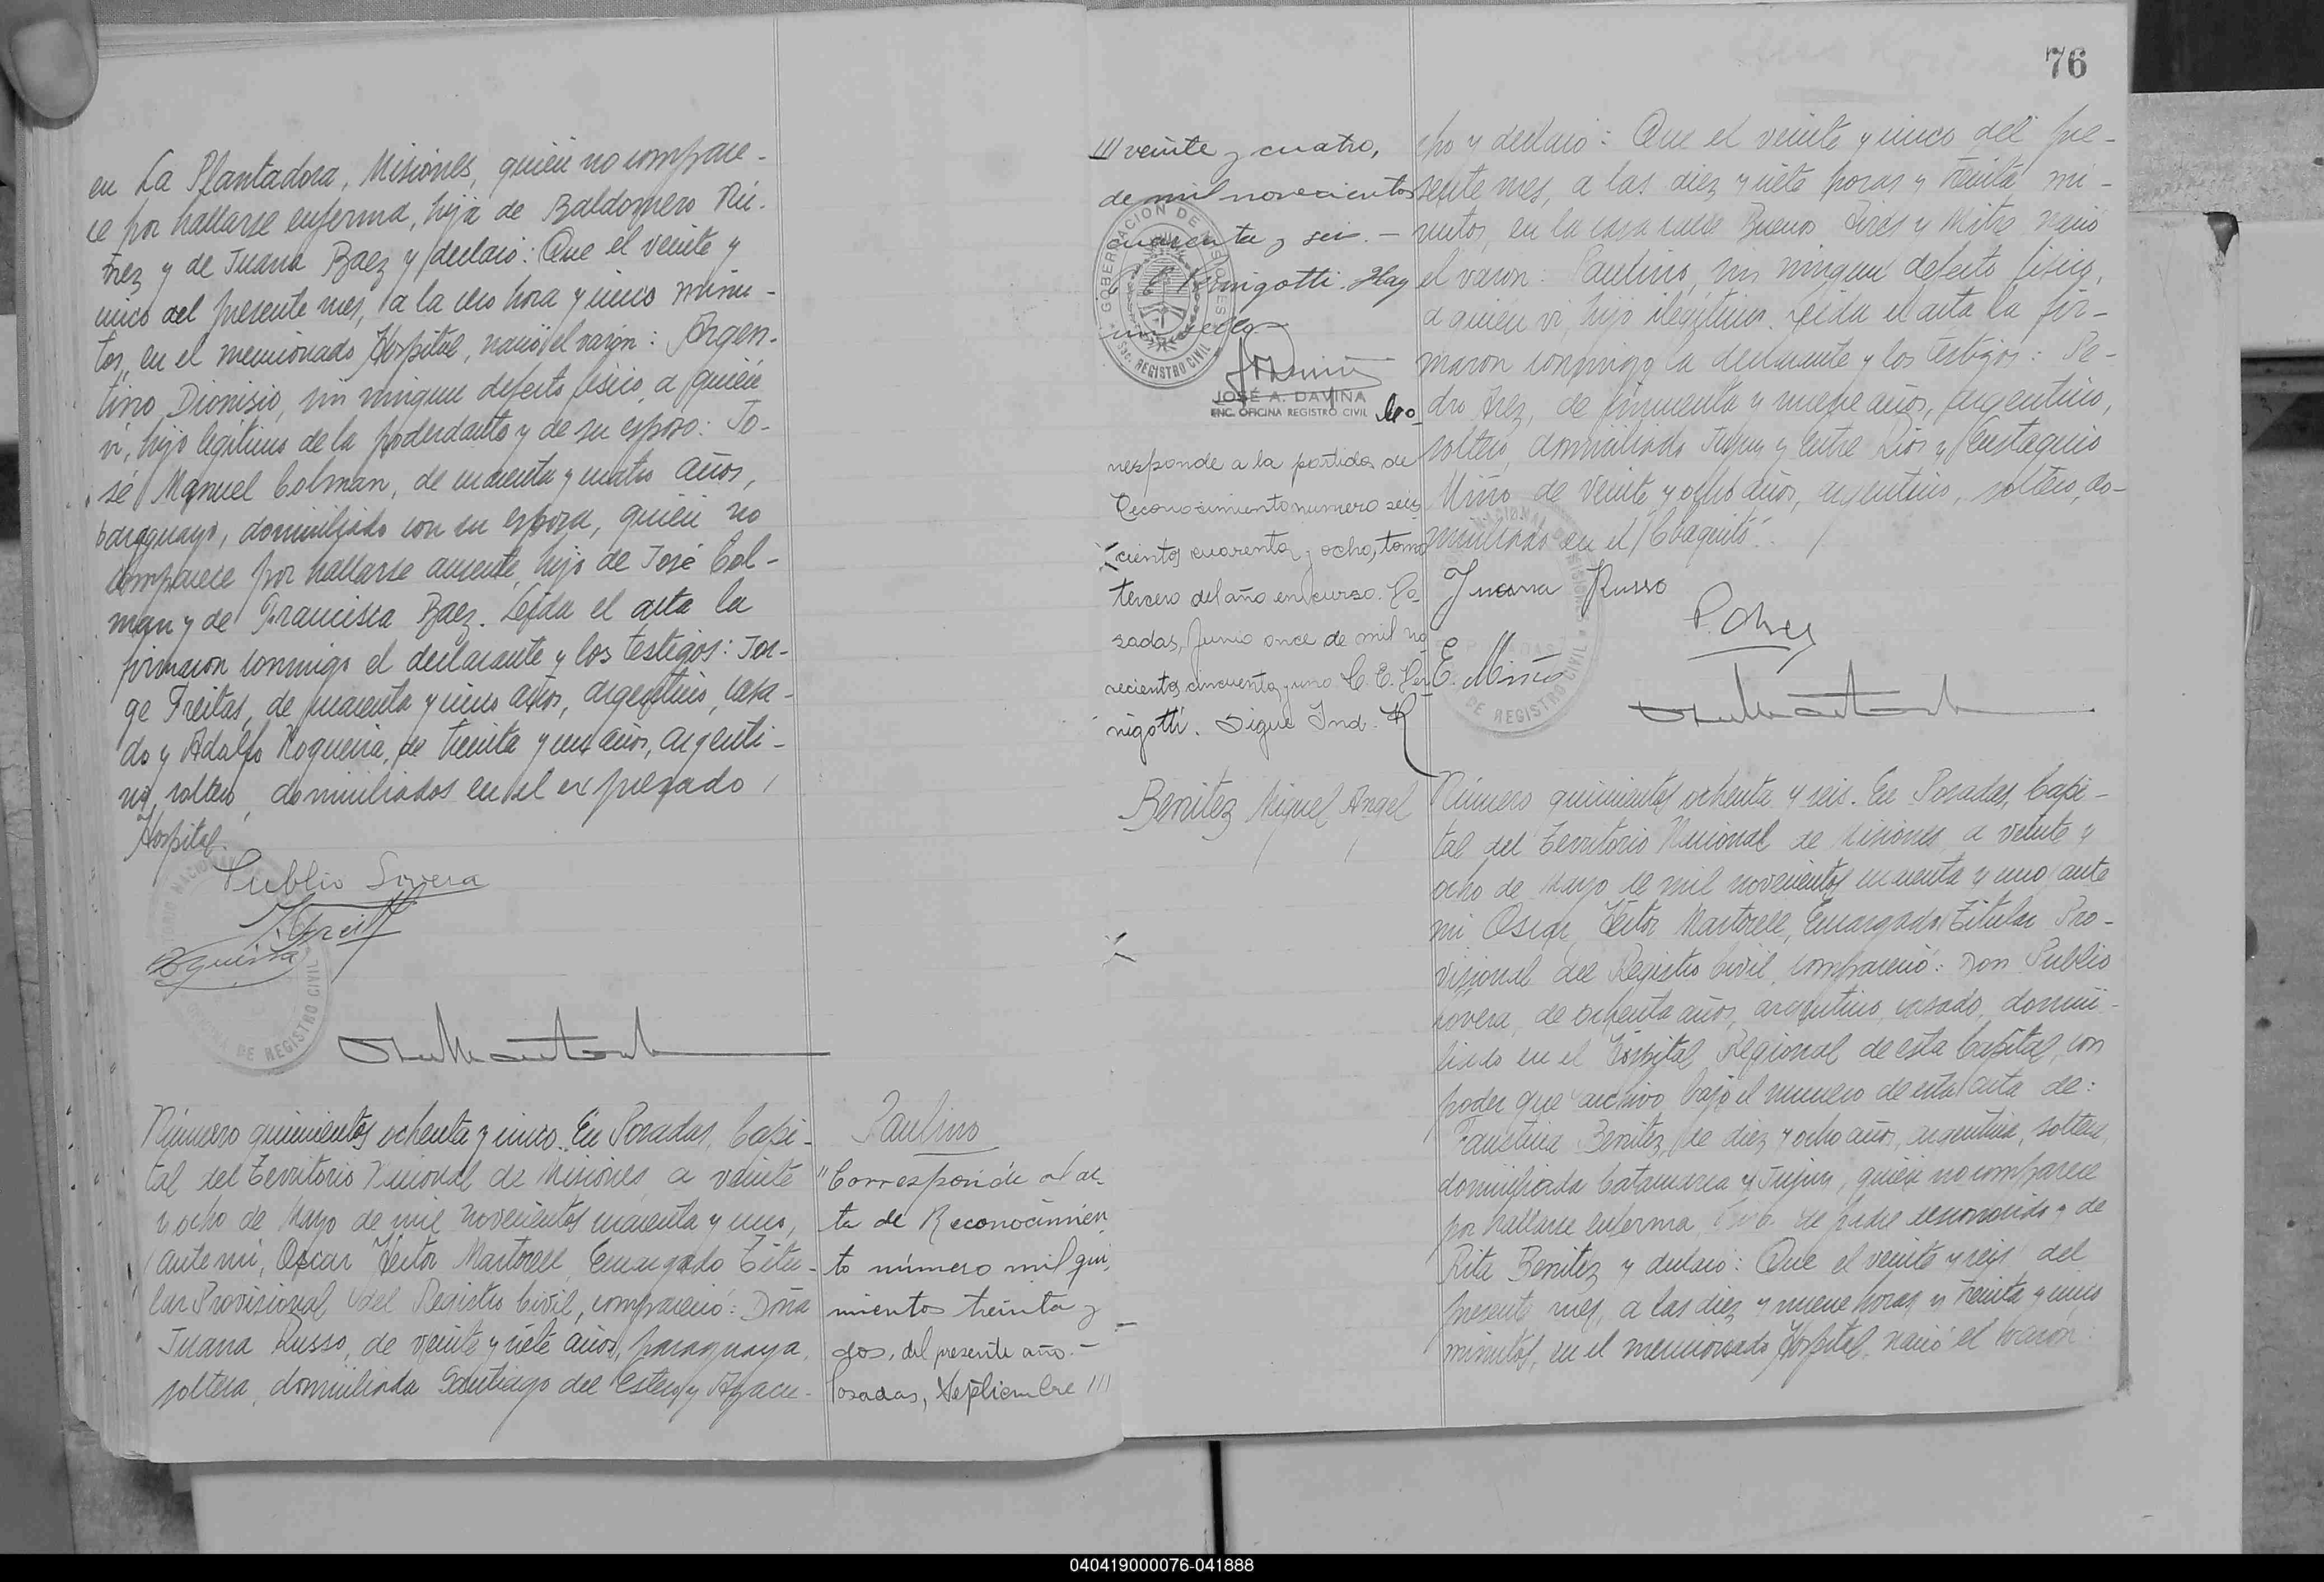 en La Plantadora, Misiones, quien no compare-
ce por hallarse enferma, hija de Baldomero Nú-
ñez y de Juana Baez y declaró: Que el veinte y
cinco del presente mes, a la cero hora y cinco minu-
tos, en el mencionado Hospital, nació el varón: Argen-
tino Dionisio, sin ningun defecto físico, a quién
ví, hijo legítimo de la poderdante y de su esposo: Jo-
sé Manuel Colman, de cuarenta y cuatro años,
paraguayo, domiciliado con su esposa, quién no
comparece por hallarse ausente, hijo de José Col-
man y de Francisca Baez. Leída el acta la
firmaron conmigo el declarante y los testigos: Jor-
ge Freitas, de cuarenta y cinco años, argentino, casa-
do y Adolfo Noguera, de treinta y un años, argenti-
no, soltero, domiciliados en el expresado
Hospital.
Publio Sovera
DE REGISTRO CIVIL
Número quinientos ochenta y cinco. En Posadas, Capi-
tal del Territorio Nacional de Misiones, a veinte
y ocho de Mayo de mil novecientos cuarenta y uno,
ante mí, Oscar Héctor Martorell, Encargado Titu-
lar Provisional del Registro Civil, compareció: Doña
Juana Russo, de veinte y siete años, paraguaya,
soltera, domiciliada Santiago del Estero y Ayacu-
Paulino
"Corresponde al ac-
ta de Reconocimien
to número mil qui-
nientos treinta y
dos, del presente año.-
Posadas, Septiembre ///
76
/// veinte y cuatro,
de mil novecientos
cuarenta y seis.-
Hay
un sello
GOBERNACION DE MISIONES
REGISTRO CIVIL
JOSÉ A. DAVIÑA
ENC. OFICINA REGISTRO CIVIL
Cor-
responde a la partida de
Reconocimiento numero seis
cientos cuarenta y ocho, tomo
tercero del año en curso. Po-
sadas, Junio once de mil no
vecientos cincuenta y uno. C. E.
Sigue Ind.
cho y declaró: Que el veinte y cinco del pre-
sente mes, a las diez y siete horas y treinta mi-
nutos, en la casa calle Buenos Aires y Mitre nació
el varon: Paulino, sin ningun defecto físico,
a quien ví, hijo ilegítimo. Leída el acta la fir-
maron conmigo la declarante y los testigos: Pe-
dro de cincuenta y nueve años, argentino,
soltero, domiciliado Jujuy y Entre Rios y Eustaquio
Miño de veinte y ocho años, argentino, soltero, do-
miciliado en el Chaquito.
Juana Russo
E. Miño
DE REGISTRO CIVIL
Benitez Miguel Angel
Número quinientos ochenta y seis. En Posadas, Capi-
tal del Territorio Nacional de Misiones, a veinte y
ocho de Mayo de mil novecientos cuarenta y uno, ante
mi Oscar Héctor Martorell, Encargado Titular Pro-
visional del Registro Civil, compareció: Don Publio
Sovera, de ochenta años, argentino, casado, domici-
liado en el Hospital Regional de esta Capital, con
poder que archivo bajo el numero de esta acta de:
Faustina Benitez, de diez y ocho años, argentina, soltera,
domiciliada Catamarca y Jujuy, quién no comparece
por hallarse enferma, hija de padre desconocido y de
Rita Benitez y declaró: Que el veinte y seis del
presente mes, a las diez y nueve horas y treinta y cinco
minutos, en el mencionado Hospital, nació el varón:
040419000076-041888